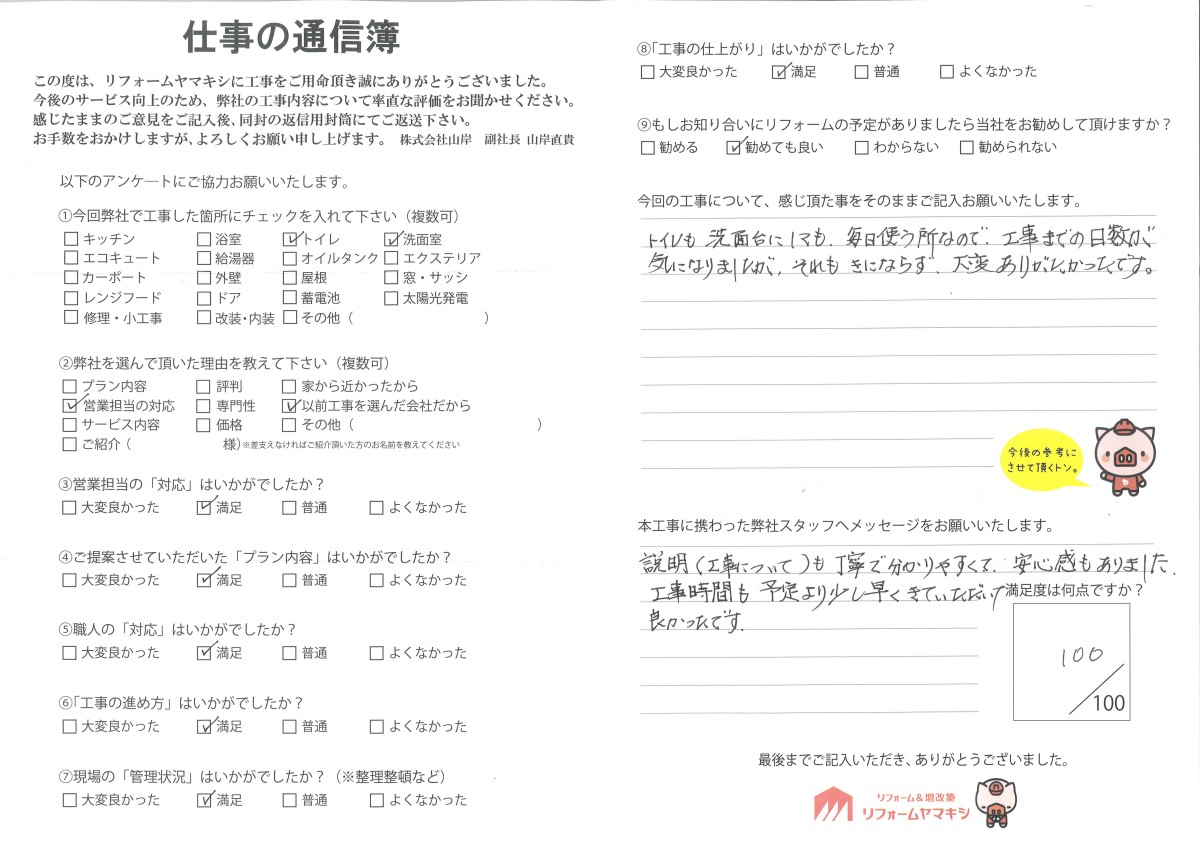 仕事の通信簿
この度は、リフォームヤマキシに工事をご用命頂き誠にありがとうございました。
今後のサービス向上のため、弊社の工事内容について率直な評価をお聞かせください。
感じたままのご意見をご記入後、同封の返信用封筒にてご返送下さい。
お手数をおかけしますが、よろしくお願い申し上げます。 株式会社山岸 副社長 山岸直貴
以下のアンケートにご協力お願いいたします。
①今回弊社で工事した箇所にチェックを入れて下さい（複数可）
□ キッチン □ 浴室 ☑ トイレ ☑ 洗面室
□ エコキュート □ 給湯器 □ オイルタンク □ エクステリア
□ カーポート □ 外壁 □ 屋根 □ 窓・サッシ
□ レンジフード □ ドア □ 蓄電池 □ 太陽光発電
□ 修理・小工事 □ 改装・内装 □ その他（ ）
②弊社を選んで頂いた理由を教えて下さい（複数可）
□ プラン内容 □ 評判 □ 家から近かったから
☑ 営業担当の対応 □ 専門性 ☑ 以前工事を選んだ会社だから
□ サービス内容 □ 価格 □ その他（ ）
□ ご紹介（ 様）※差支えなければご紹介頂いた方のお名前を教えてください
③営業担当の「対応」はいかがでしたか？
□ 大変良かった ☑ 満足 □ 普通 □ よくなかった
④ご提案させていただいた「プラン内容」はいかがでしたか？
□ 大変良かった ☑ 満足 □ 普通 □ よくなかった
⑤職人の「対応」はいかがでしたか？
□ 大変良かった ☑ 満足 □ 普通 □ よくなかった
⑥「工事の進め方」はいかがでしたか？
□ 大変良かった ☑ 満足 □ 普通 □ よくなかった
⑦現場の「管理状況」はいかがでしたか？（※整理整頓など）
□ 大変良かった ☑ 満足 □ 普通 □ よくなかった
⑧「工事の仕上がり」はいかがでしたか？
□ 大変良かった ☑ 満足 □ 普通 □ よくなかった
⑨もしお知り合いにリフォームの予定がありましたら当社をお勧めして頂けますか？
□ 勧める ☑ 勧めても良い □ わからない □ 勧められない
今回の工事について、感じ頂た事をそのままご記入お願いいたします。
トイレも 洗面台にしても、毎日使う所なので、工事までの日数が
気になりましたが、それも きにならず、大変 ありがたかったです。
今後の参考に
させて頂くトン。
ヤ
本工事に携わった弊社スタッフへメッセージをお願いいたします。
説明（工事について）も 丁寧で分かりやすくて、安心感もありました。
工事時間も 予定より少し早く きていただいて
良かったです。
満足度は何点ですか？
100
/100
最後までご記入いただき、ありがとうございました。
リフォーム&増改築
リフォームヤマキシ